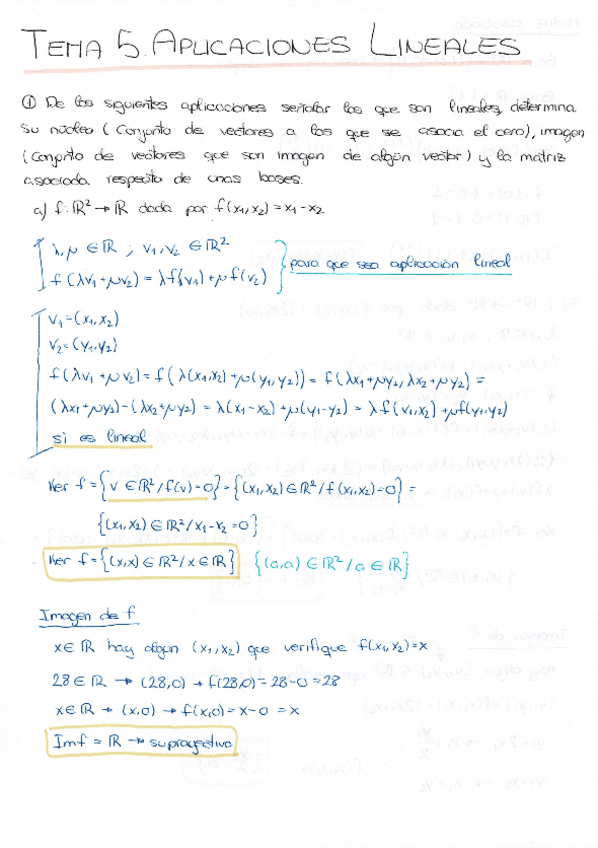 TEMA 5. APLICACIONES LINEALES
① De las siguientes aplicaciones señalar las que son lineales, determina
su núcleo (Conjunto de vectores a los que se asocia el cero), imagen
(Conjunto de vectores que son imagen de algún vector) y la matriz
asociada respecto de unas bases.
a) f: ℝ² → ℝ dada por f(x₁,x₂) = x₁-x₂
λ,μ ∈ ℝ ; v₁,v₂ ∈ ℝ²
f(λv₁+μv₂) = λf(v₁)+μf(v₂)
para que sea aplicación lineal
v₁=(x₁,x₂)
v₂=(y₁,y₂)
f(λv₁+μv₂) = f(λ(x₁,x₂)+μ(y₁,y₂)) = f(λx₁+μy₁, λx₂+μy₂) =
(λx₁+μy₁)-(λx₂+μy₂) = λ(x₁-x₂)+μ(y₁-y₂) = λf(x₁,x₂)+μf(y₁,y₂)
si es lineal
Ker f = {v ∈ ℝ²/f(v)=0} = {(x₁,x₂) ∈ ℝ²/f(x₁,x₂)=0} =
{(x₁,x₂) ∈ ℝ²/x₁-x₂=0}
Ker f = {(x,x) ∈ ℝ²/x ∈ ℝ} {(a,a) ∈ ℝ²/a ∈ ℝ}
Imagen de f
x ∈ ℝ hay algún (x₁,x₂) que verifique f(x₁,x₂)=x
28 ∈ ℝ → (28,0) → f(28,0) = 28-0 = 28
x ∈ ℝ → (x,0) → f(x,0) = x-0 = x
Imf = ℝ → suprayectiva